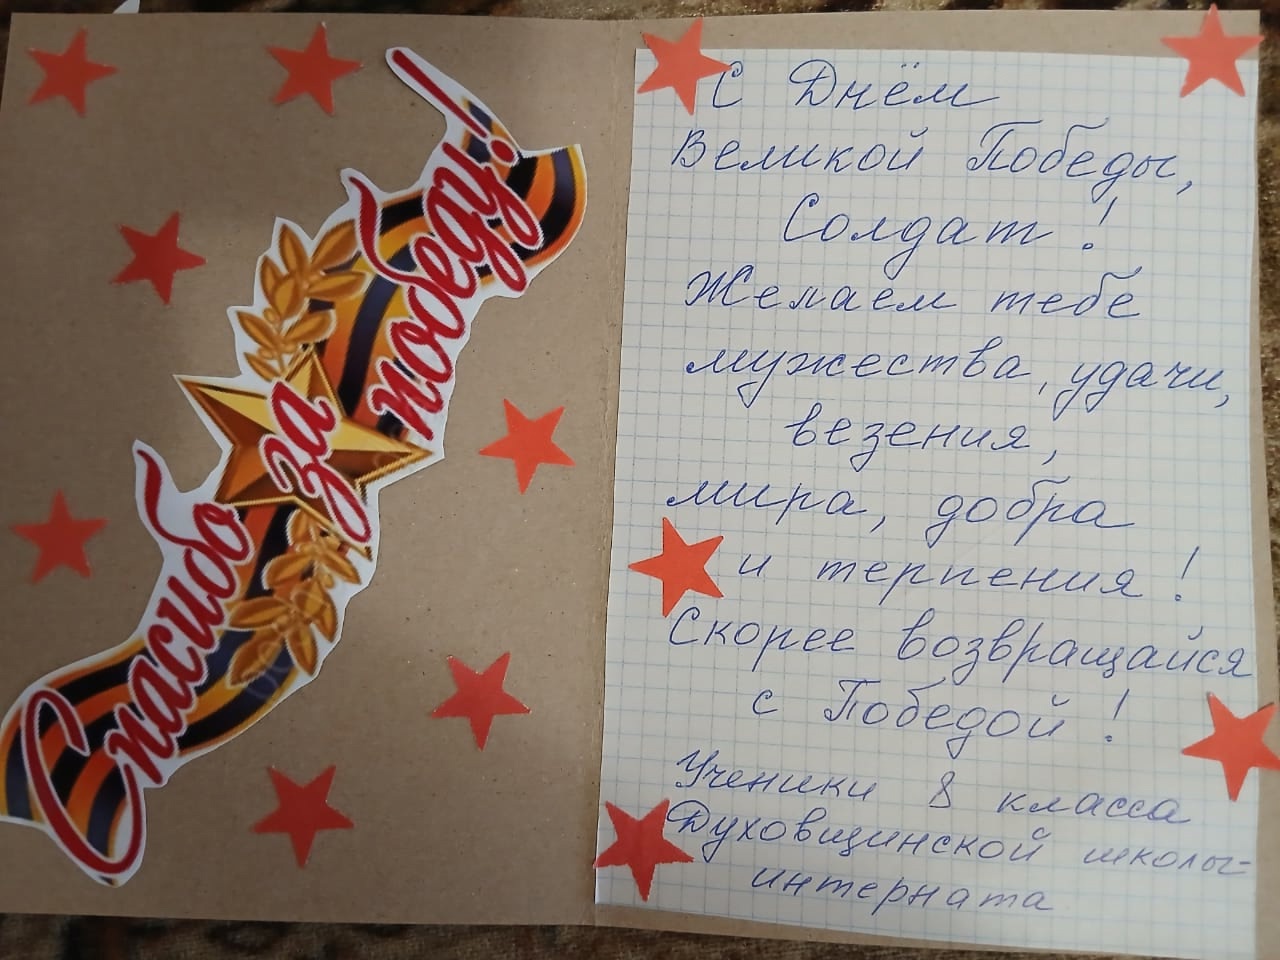 Спасибо за победу!
С Днём
Великой Победы,
Солдат!
Желаем тебе
мужества, удачи,
везения,
мира, добра
и терпения!
Скорее возвращайся
с Победой!
Ученики 8 класса
Духовщинской школы-
интерната